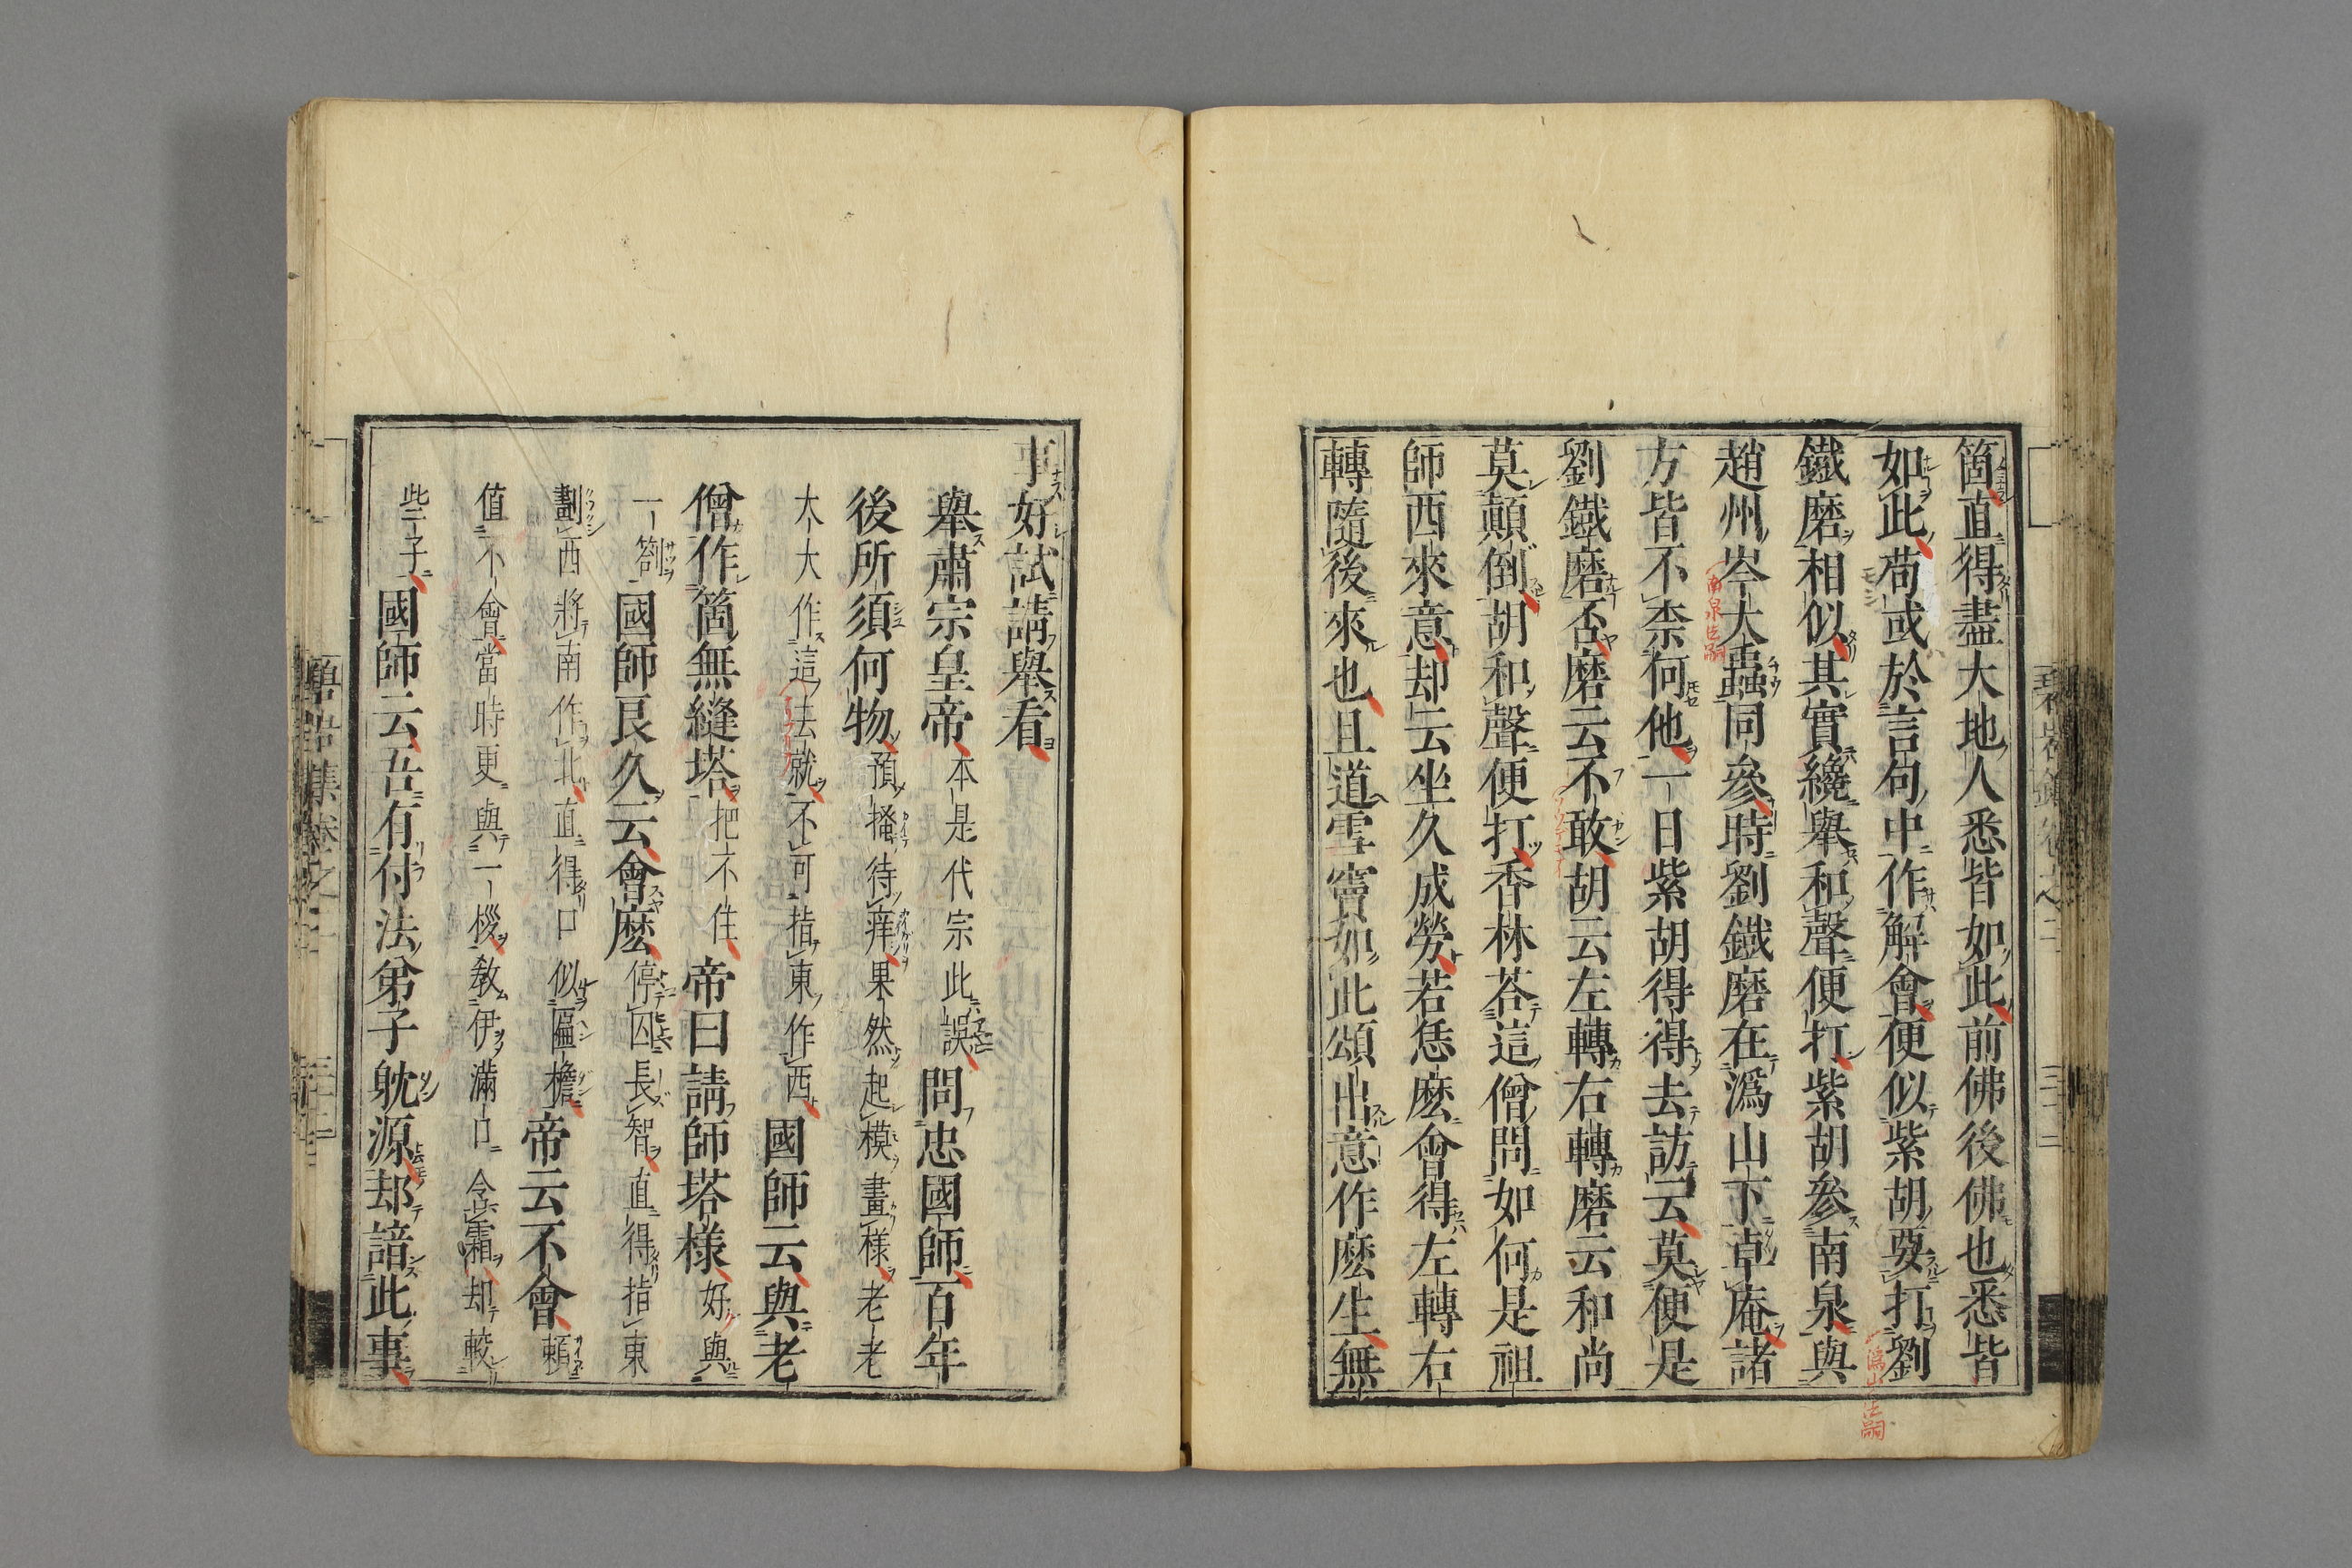 箇直得盡大地人悉皆如此前佛後佛也悉皆
如此苟或於言句中作解會便似紫胡要打劉
鐵磨相似其實纔舉和聲便打紫胡參南泉與
趙州岑大蟲同參時劉鐵磨在潙山下卓庵諸
方皆不柰何他一日紫胡得得去訪云莫便是
劉鐵磨否磨云不敢胡云左轉右轉磨云和尚
莫顛倒胡和聲便打香林荅這僧問如何是祖
師西來意却云坐久成勞若恁麽會得左轉右
轉隨後來也且道雪竇如此頌出意作麽生無
事好試請舉看
舉肅宗皇帝本是代宗此誤問忠國師百年
後所須何物預搔待痒果然起模畫樣老老
大大作這去就不可指東作西國師云與老
僧作箇無縫塔把不住帝曰請師塔樣好與
一劄國師良久云會麽停囚長智直得指東
劃西將南作北直得口似匾檐帝云不會賴
值不會當時更與一拶敎伊滿口含霜却較
些子國師云吾有付法弟子躭源却諳此事
潙山法嗣
南泉法嗣